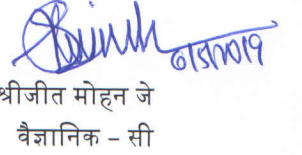 6/5/2019
श्रीजीत मोहन जे
वैज्ञानिक – सी